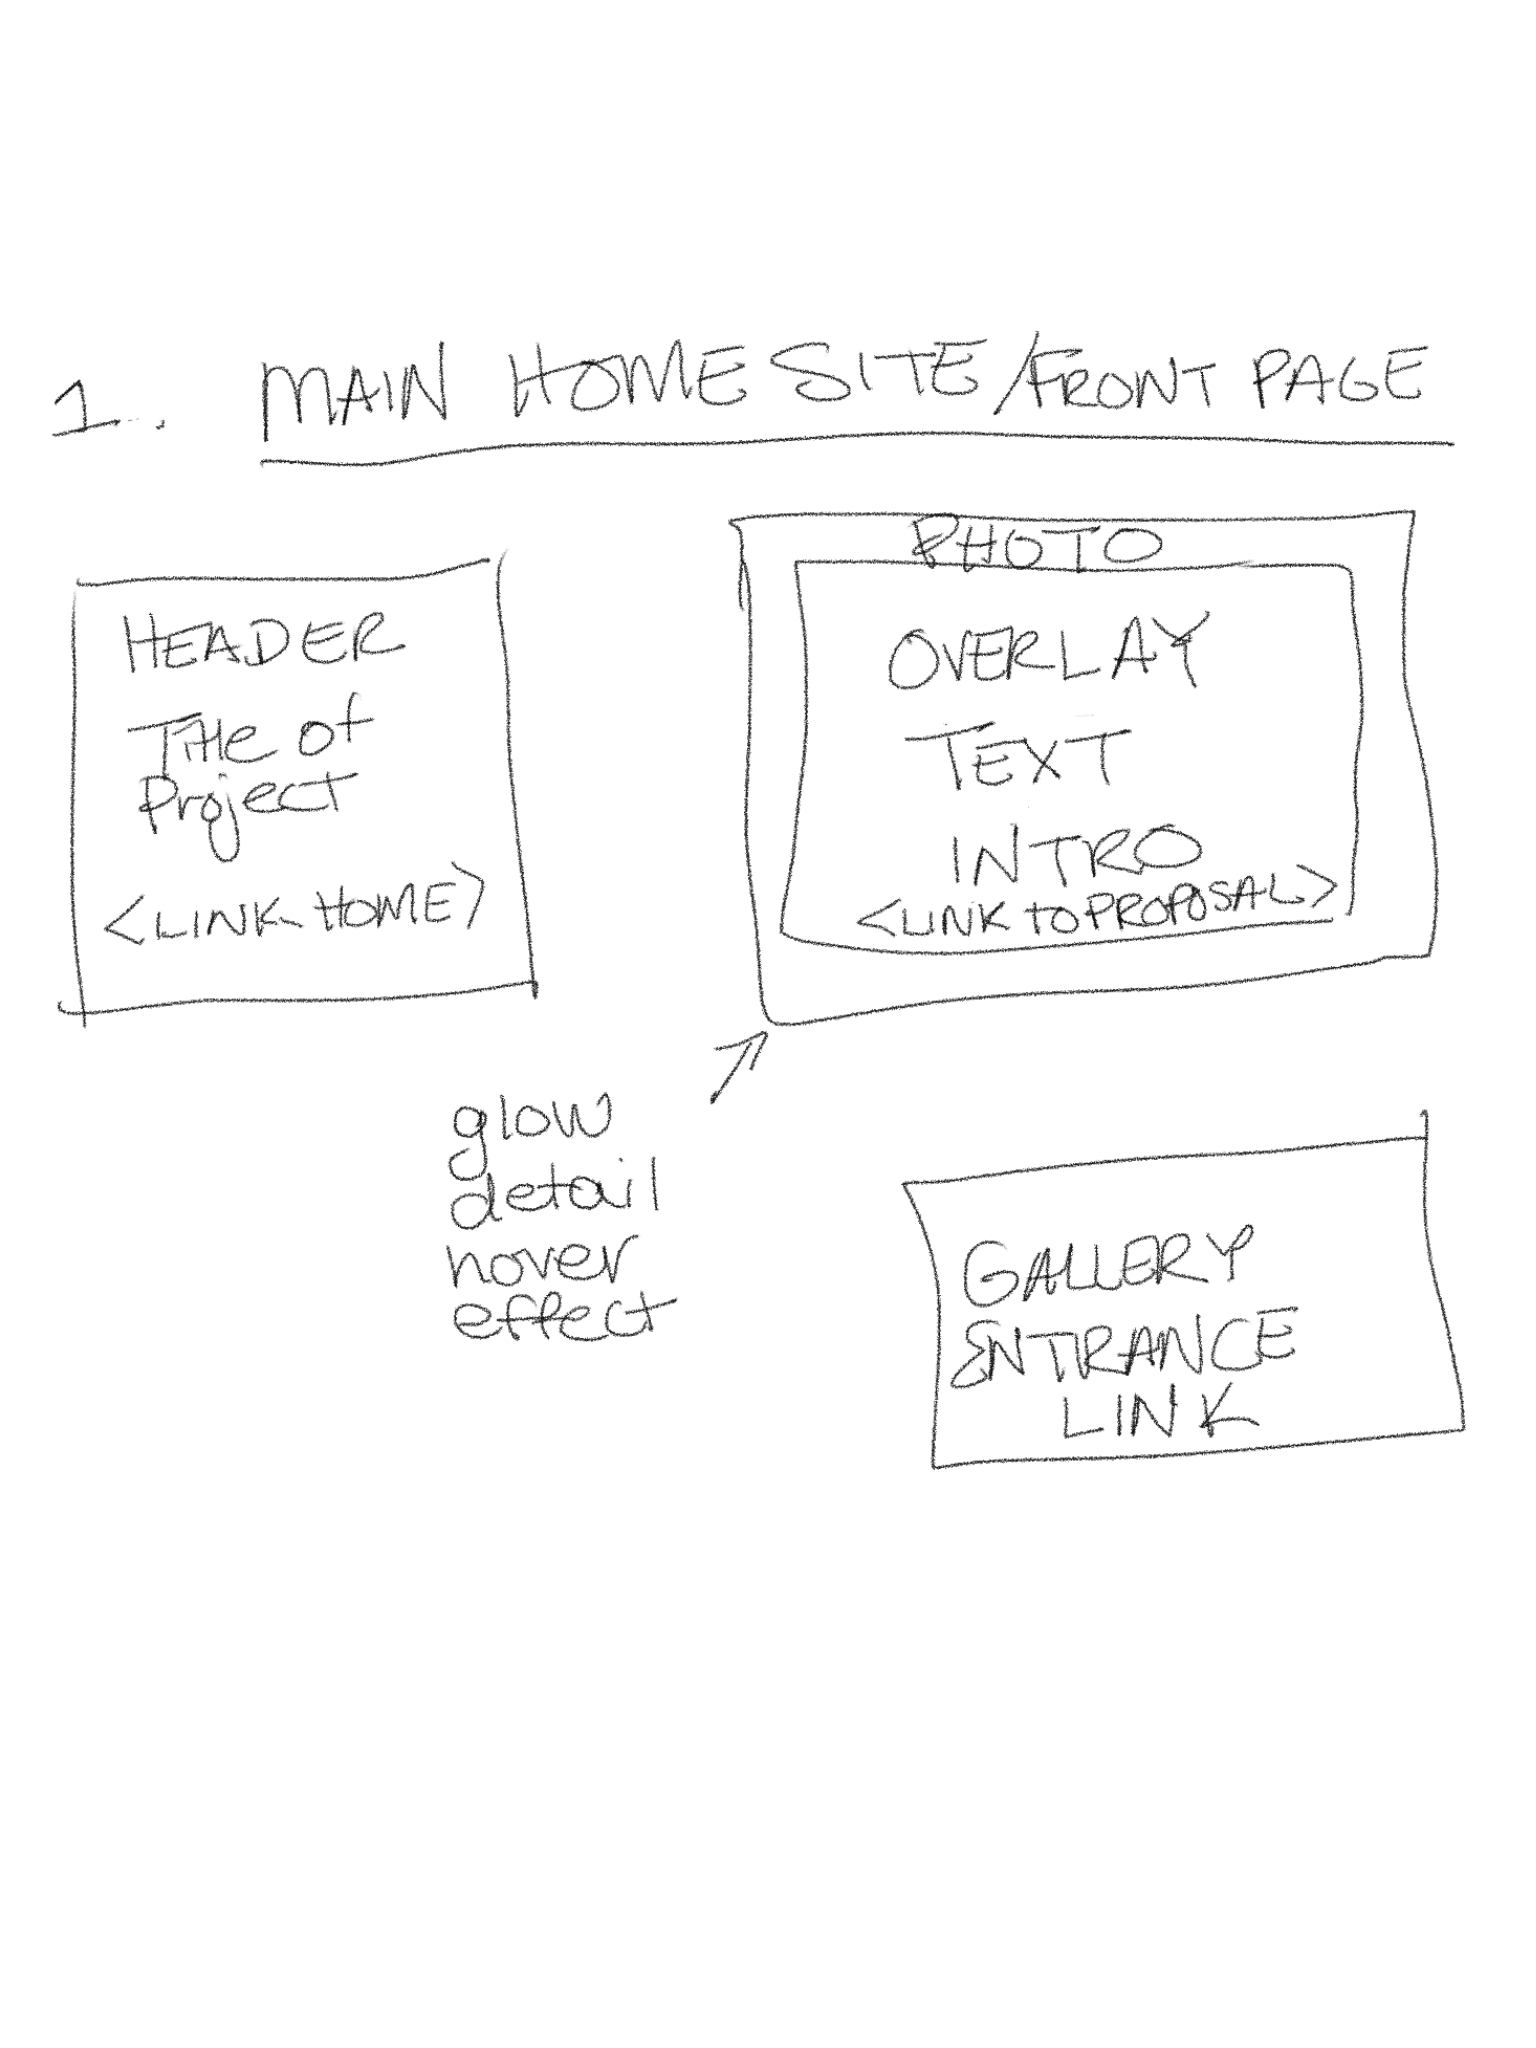 1. MAIN HOME SITE/FRONT PAGE
HEADER
Title of
Project
<LINK HOME>
PHOTO
OVERLAY
TEXT
INTRO
<LINK to PROPOSAL>
glow
detail
hover
effect
GALLERY
ENTRANCE
LINK